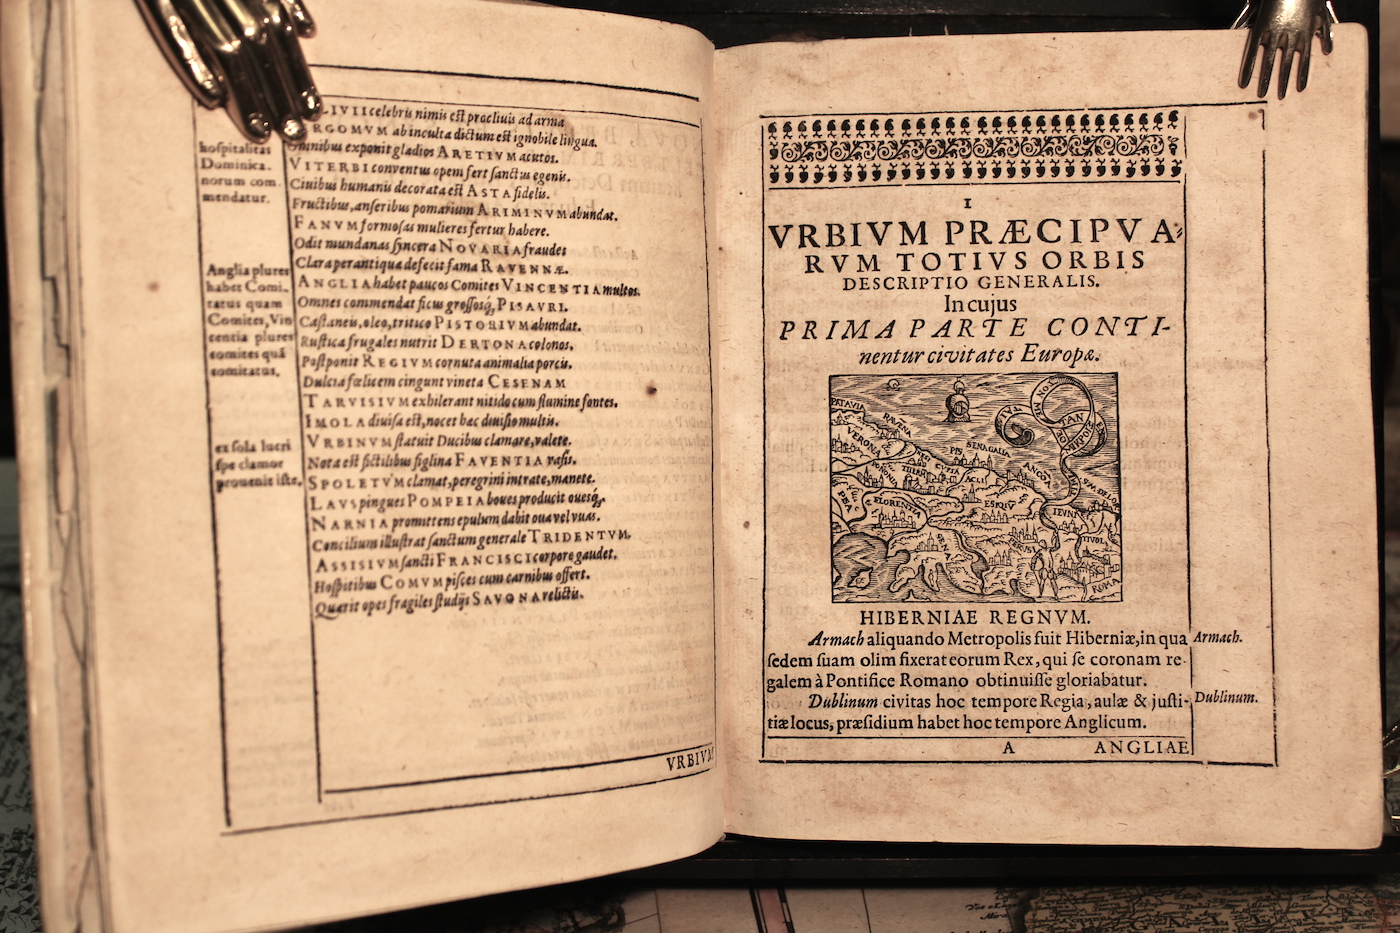 LIVII celebris nimis est proclivis ad arma
RGOMVM ab inculta dictum est ignobile lingua.
Omnibus exponit gladios ARETIVM acutos.
VITERBI conventus opem fert sanctus egenis.
Civibus humanis decorata est ASTA fidelis.
Fructibus, anseribus pomarium ARIMINVM abundat.
FANVM formosas mulieres fertur habere.
Odit mundanas syncera NOVARIA fraudes
Clara per antiqua defecit fama RAVENNÆ.
ANGLIA habet paucos Comites VINCENTIA multos.
Omnes commendat ficus grossosq́; PISAVRI.
Castaneis, oleo, tritico PISTORIVM abundat.
Rustica frugales nutrit DERTONA colonos.
Postponit REGIVM cornuta animalia porcis.
Dulcia fœlicem cingunt vineta CESENAM
TARVISIVM exhilerant nitido cum flumine fontes.
IMOLA divisa est, nocet hæc divisio multis.
VRBINVM statuit Ducibus clamare, valete.
Nota est fictilibus figlina FAVENTIA vasis.
SPOLETVM clamat, peregrini intrate, manete.
LAVS pingues POMPEIA boves producit ovesq́;
NARNIA promittens epulum dabit ova vel uvas.
Concilium illustrat sanctum generale TRIDENTVM.
ASSISIVM sancti FRANCISCI corpore gaudet.
Hospitibus COMVM pisces cum carnibus offert.
Quærit opes fragiles studijs SAVONA relictis.
hospitalitas
Dominica.
norum com.
mendatur.
Anglia plures
habet Comi.
tatus quam
Comites, Vin
centia plures
comites quā
comitatus.
ex sola lucri
spe clamor
provenit iste.
VRBIVM
I
VRBIVM PRÆCIPVA-
RVM TOTIVS ORBIS
DESCRIPTIO GENERALIS.
In cujus
PRIMA PARTE CONTI-
nentur civitates Europæ.
PATAVIA
RAVENA
VERONA
SENAGALIA
PIS
ANCONA
BONONIA
ACLI
FLORENTIA
ESKQIV
SENA
PERUSIA
TIVOLI
ROMA
HIBERNIAE REGNVM.
Armach aliquando Metropolis fuit Hiberniæ, in qua
sedem suam olim fixerat eorum Rex, qui se coronam re-
galem à Pontifice Romano obtinuisse gloriabatur.
Dublinum civitas hoc tempore Regia, aulæ & justi-
tiæ locus, præsidium habet hoc tempore Anglicum.
Armach.
Dublinum.
A ANGLIAE